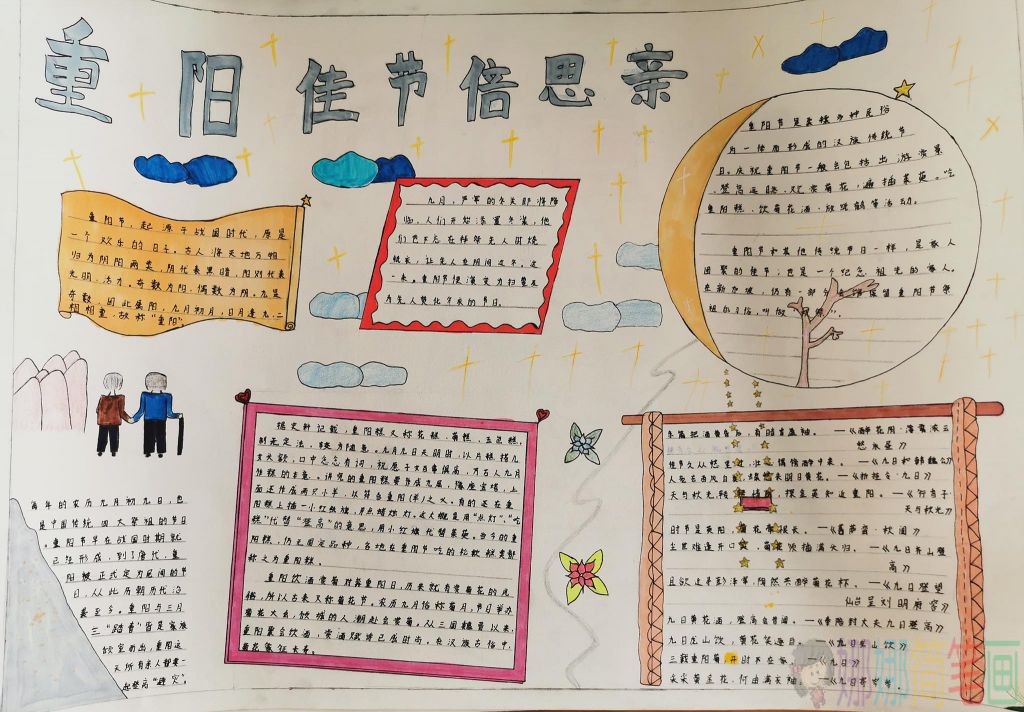 重阳佳节倍思亲
重阳节,起源于战国时代,原是
一个欢乐的日子。古人将天地万物
归为阴阳两类,阴代表黑暗,阳则代表
光明、活力。奇数为阳,偶数为阴。九是
奇数,因此属阳,九月初九,日月逢九,二
阳相重,故称“重阳”。
九月,严寒的冬天即将降
临,人们开始添置冬装,他
们也不忘在拜祭先人时烧
纸衣,让先人在阴间过冬。这
一来,重阳节便演变为扫墓及
为先人焚化冬衣的节日。
重阳节是杂糅多种民俗
为一体而形成的汉族传统节
日。庆祝重阳节一般会包括出游赏景
、登高远眺、观赏菊花、遍插茱萸、吃
重阳糕、饮菊花酒、放纸鹞等活动。
重阳节和其他传统节日一样,是家人
团聚的佳节;也是一个纪念祖先的家人。
在新加坡,仍有一部分
保留重阳节祭
祖的习俗,叫做
每年的农历九月初九日,也
是中国传统四大祭祖的节日
。重阳节早在战国时期就
已经形成,到了唐代,重
阳被正式定为民间的节
日,从此历朝历代沿
袭至今。重阳与三月
三“踏春”皆是家族
倾室而出,重阳这
天所有亲人都要一
起登高“避灾”。
据史料记载,重阳糕又称花糕、菊糕、五色糕,
制无定法,较为随意。九月九日天明时,以片糕搭儿
女头额,口中念念有词,祝愿子女百事俱高,乃古人九月
作糕的本意。讲究的重阳糕要作成九层,像座宝塔,上
面还作成两只小羊,以符合重阳(羊)之义。有的还在重
阳糕上插一小红纸旗,并点蜡烛灯。这大概是用“点灯”、“吃
糕”代替“登高”的意思,用小红纸旗代替茱萸。当今的重
阳糕,仍无固定品种,各地在重阳节吃的松软糕类都
称之为重阳糕。
重阳饮酒赏菊对每重阳日,历来就有赏菊花的风
俗,所以古来又称菊花节。农历九月俗称菊月,节日举办
菊花大会,倾城的人潮赴会赏菊。从三国魏晋以来,
重阳聚会饮酒、赏菊赋诗已成时尚。在汉族古俗中,
菊花象征长寿。
东篱把酒黄昏后,有暗香盈袖。——《醉花阴·薄雾浓云
愁永昼》
佳节久人愁里过,
中来。——《九日和韩魏公》
明日黄花。——《折桂令·九日》
天与秋光,转
,探金英知近重阳。——《行香子·
天与秋光》
时节是重阳,菊花
长。——《菩萨蛮·秋闺》
尘世难逢开口
,菊花须插满头归。——《九日齐山登
高》
且欲近寻彭泽宰,陶然共醉菊花杯。——《九日登望
仙台呈刘明府容》
九日黄花酒,登高会昔闻。——《奉陪封大夫九日登高》
九日龙山饮,黄花笑逐臣。——《九日龙山饮》
三载重阳菊,开时不在家。
九日》
采采黄金花,何由满衣袖。